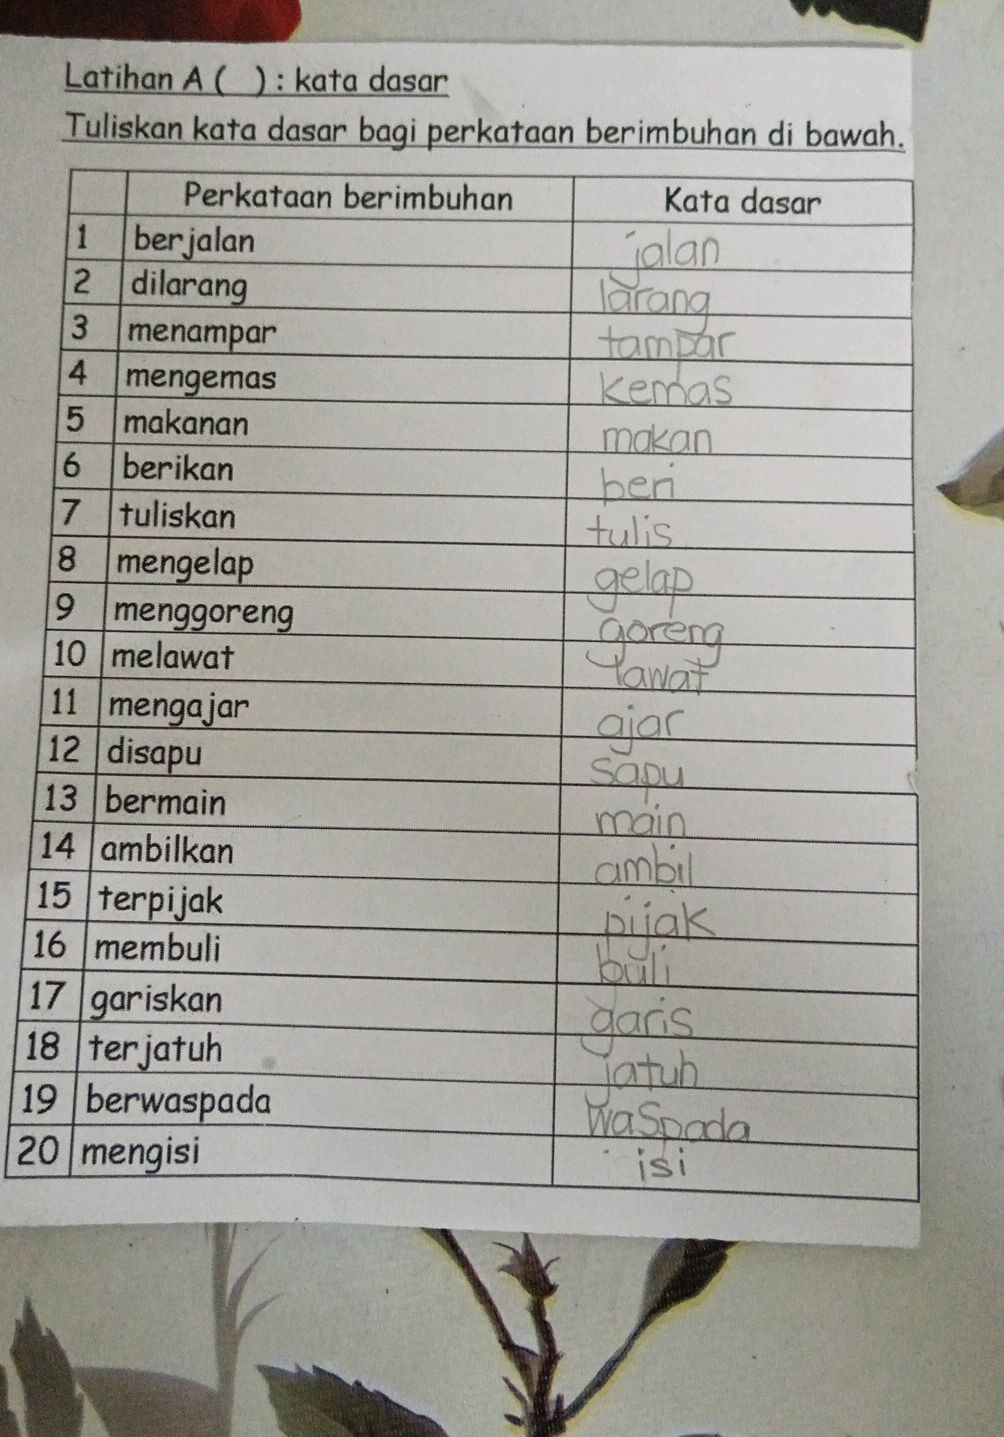 Latihan A (   ) : kata dasar
Tuliskan kata dasar bagi perkataan berimbuhan di bawah.
Perkataan berimbuhan Kata dasar
1 berjalan jalan
2 dilarang larang
3 menampar tampar
4 mengemas kemas
5 makanan makan
6 berikan beri
7 tuliskan tulis
8 mengelap gelap
9 menggoreng goreng
10 melawat lawat
11 mengajar ajar
12 disapu sapu
13 bermain main
14 ambilkan ambil
15 terpijak pijak
16 membuli buli
17 gariskan garis
18 terjatuh jatuh
19 berwaspada waspada
20 mengisi isi